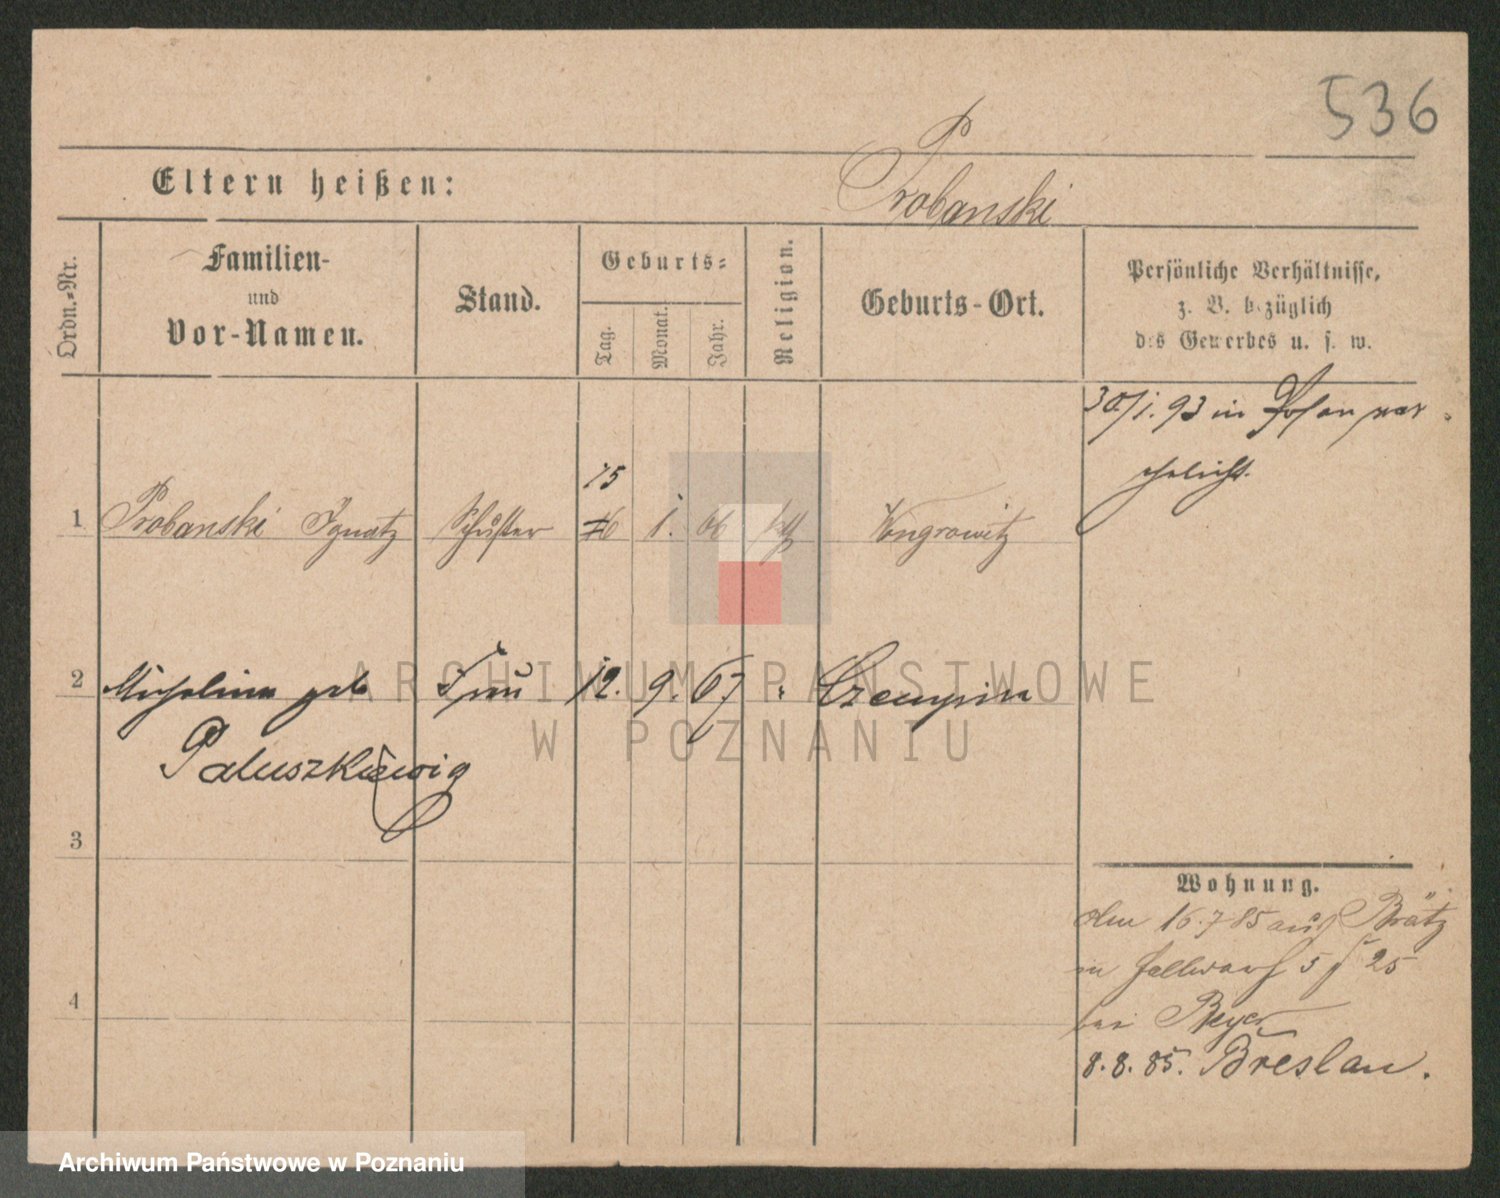 536
Eltern heißen:
Probanski
Ordn.-Nr.
Familien-
und
Vor-Namen.
Stand.
Geburts-
Tag.
Monat.
Jahr.
Religion.
Geburts-Ort.
Persönliche Verhältnisse,
z. B. bezüglich
des Gewerbes u. s. w.
30./1. 93 in Posen ver-
ehelicht.
15
1 Probanski Ignatz Schuster 16 1. 66 kth Wongrowitz
2 Michalina geb Frau 12. 9. 67 " Czempin
Paluszkiewig
3
4
Wohnung.
den 16.7 85 aus Brätz
in Hallwarf 5 / 25
bei Beyer
8.8.85. Breslau.
ARCHIWUM PAŃSTWOWE
W POZNANIU
Archiwum Państwowe w Poznaniu